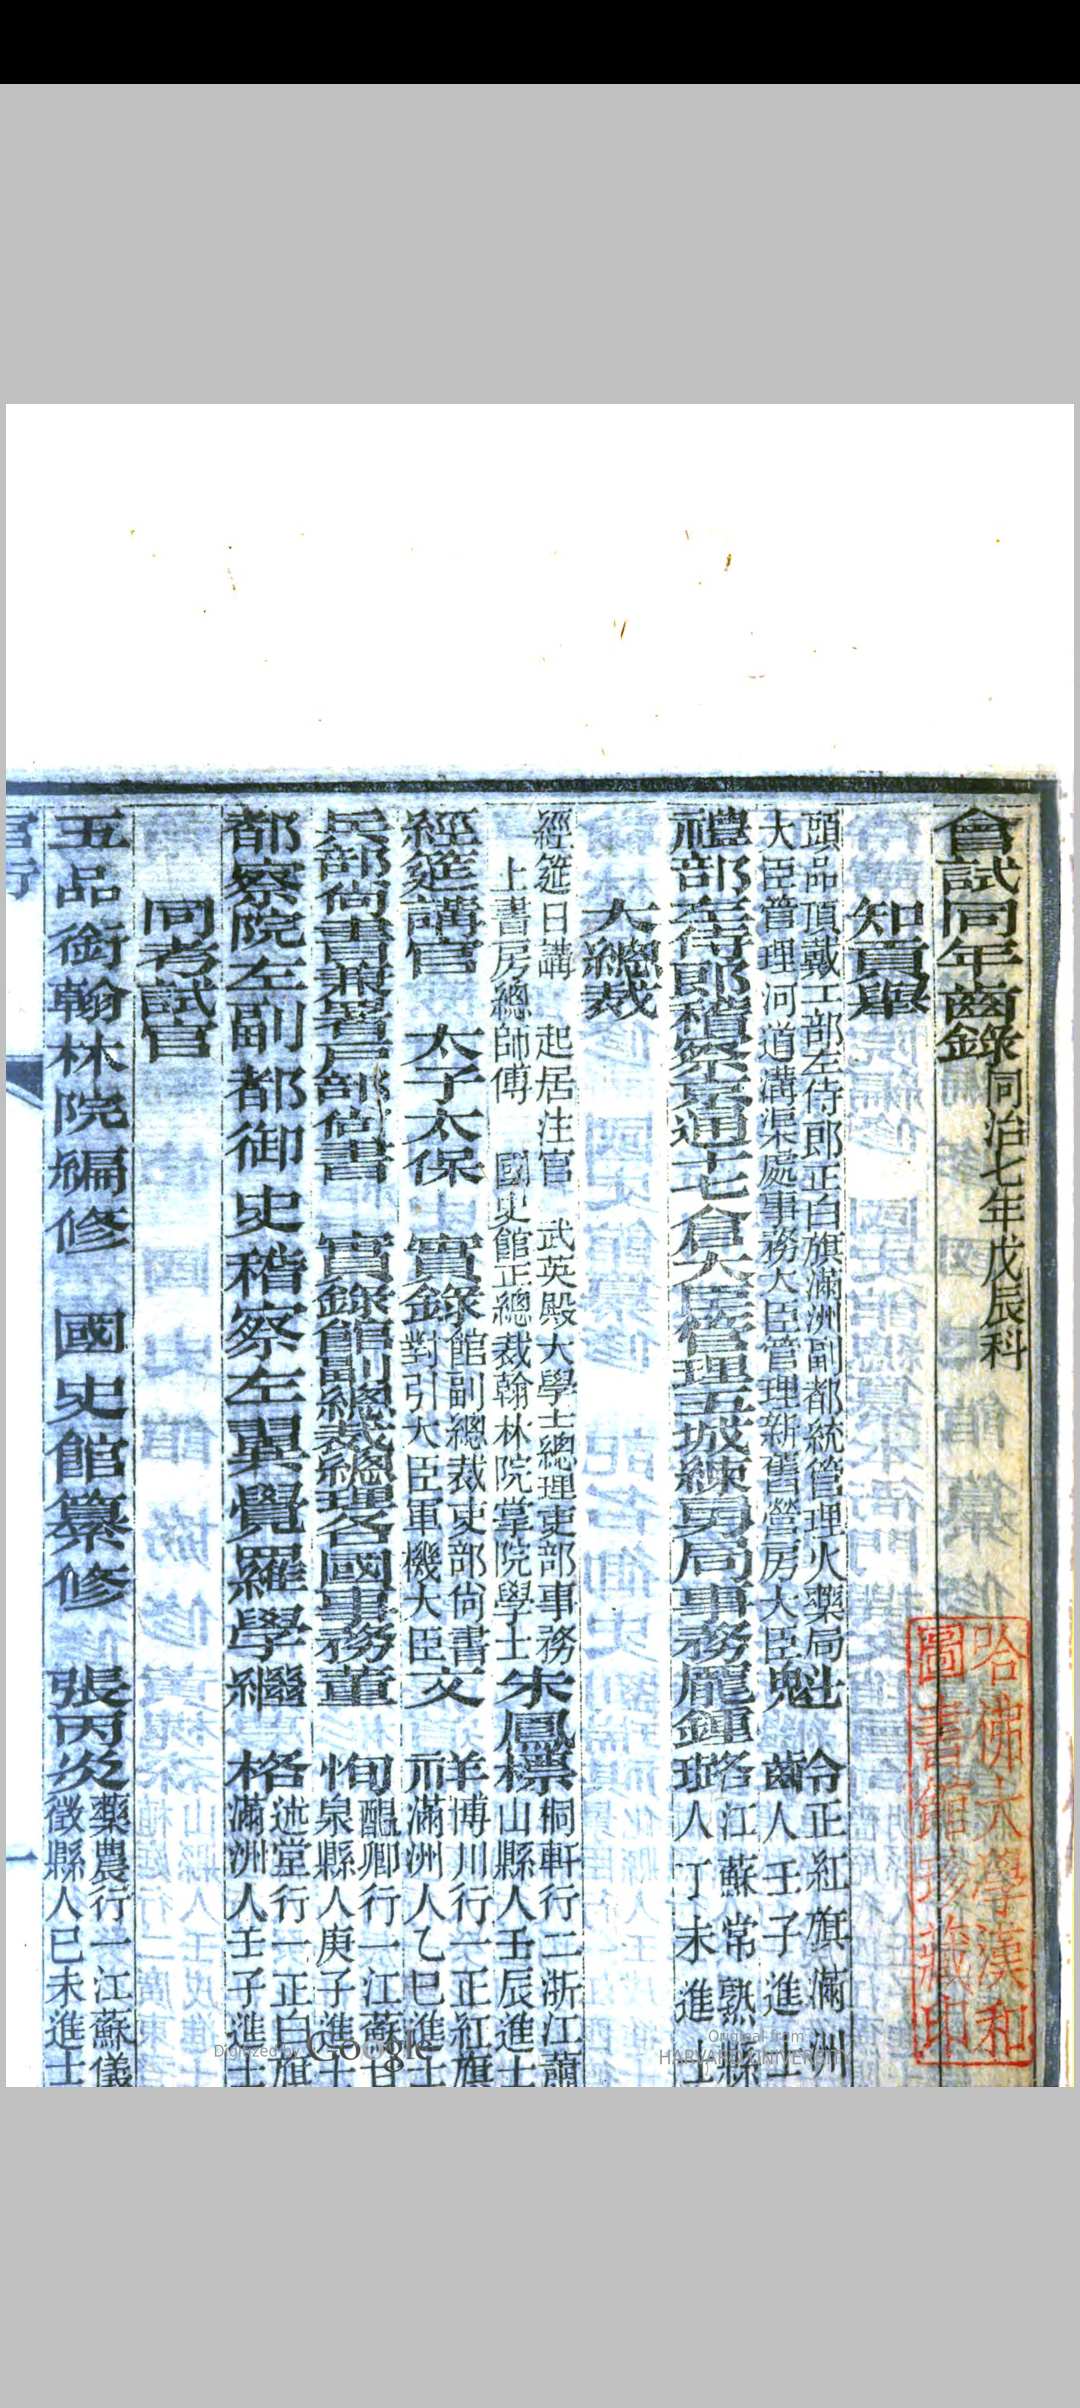 會試同年齒錄同治七年戊辰科
知貢舉
頭品頂戴工部左侍郎正白旗滿洲副都統管理火藥局
大臣管理河道溝渠處事務大臣管理新舊營房大臣魁齡正紅旗滿洲
人壬子進士
禮部左侍郎稽察京通十七倉大臣管理五城練勇局事務龐鍾璐江蘇常熟
人丁未進士
大總裁
經筵日講 起居注官 武英殿大學士總理吏部事務
上書房總師傅 國史館正總裁翰林院掌院學士朱鳳標桐軒行二浙江蕭
山縣人壬辰進士
經筵講官 太子太保 實錄館副總裁吏部尙書
對引大臣軍機大臣文祥博川行一正紅旗
滿洲人乙巳進士
兵部尙書兼署戶部尙書 實錄館副總裁總理各國事務董恂醞卿行一江蘇甘
泉縣人庚子進士
都察院左副都御史稽察左翼覺羅學繼格述堂行一正白旗
滿洲人壬子進士
同考試官
五品銜翰林院編修 國史館纂修 張丙炎藥農行一江蘇儀
徵縣人己未進士
哈佛大學漢和
圖書館珍藏印
Digitized by Google
Original from
HARVARD UNIVERSITY